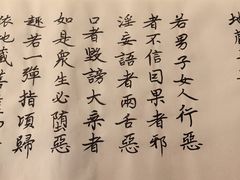 地藏
若男子女人行惡
者不信因果者邪
淫妄語者兩舌惡
口者毀謗大乘者
如是眾生必墮惡
趣若一彈指頃歸
依地藏菩